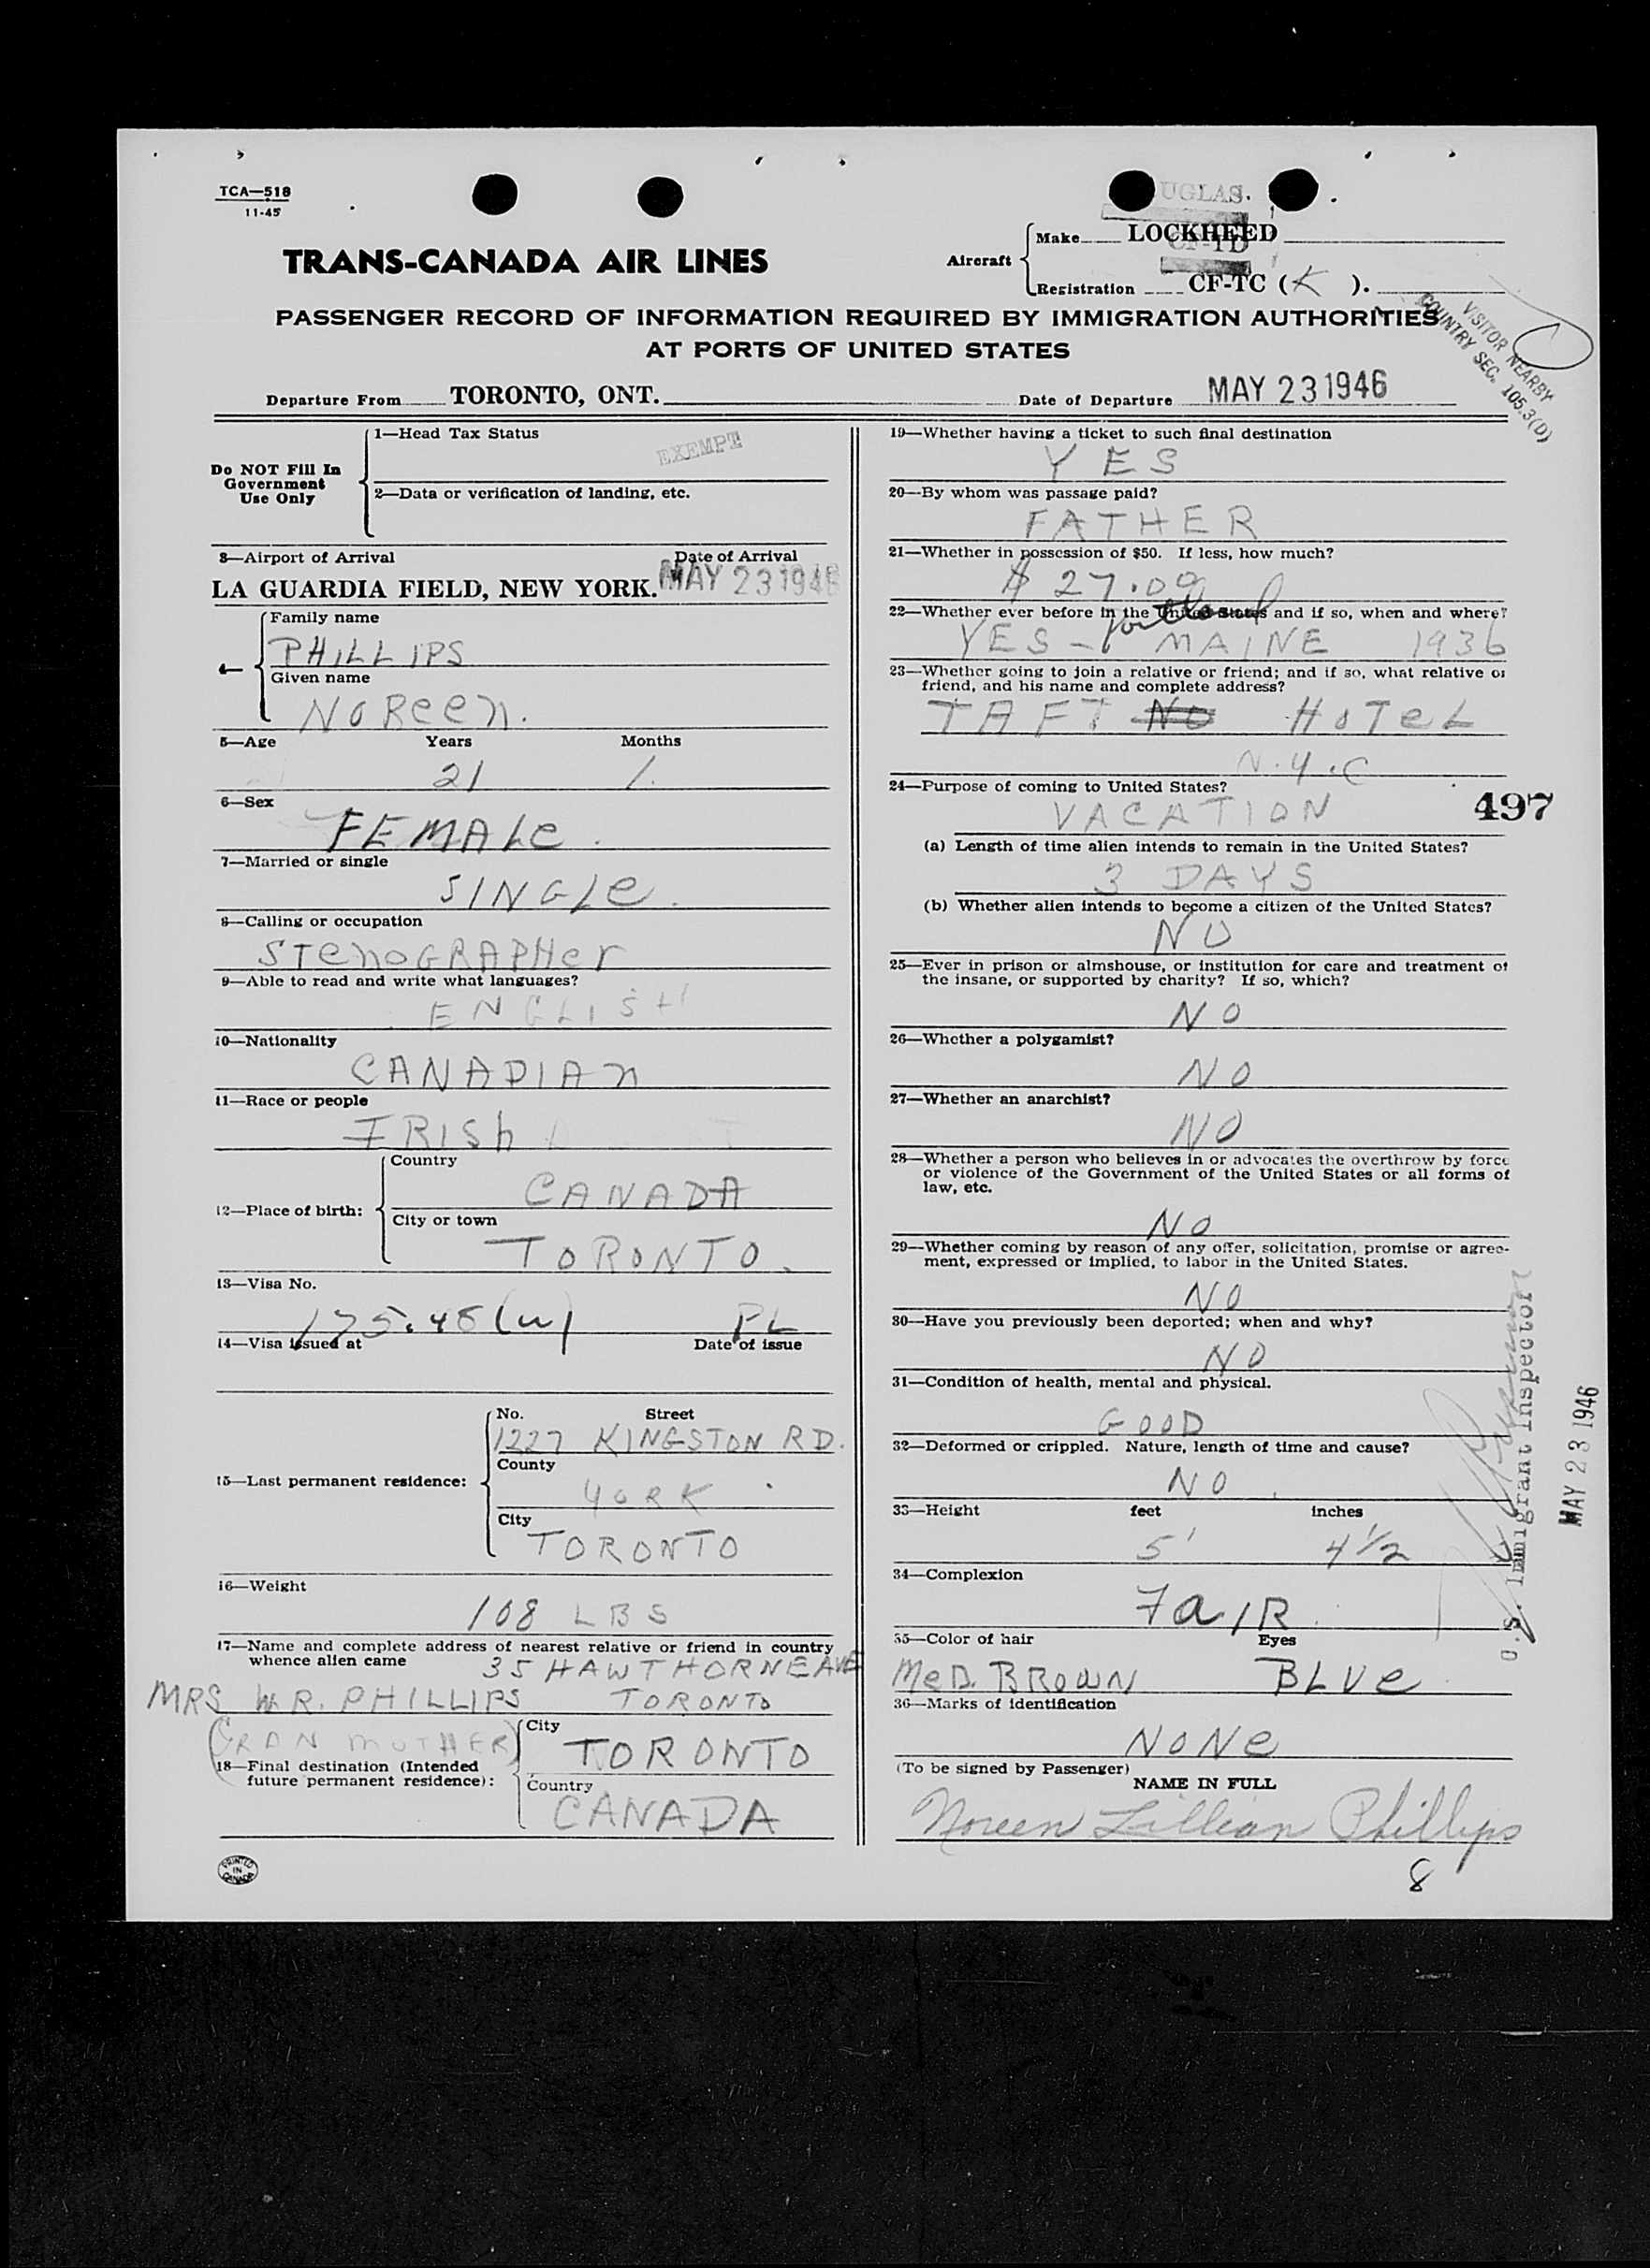 TCA—518
11-45
UGLAS.
TRANS-CANADA AIR LINES
Aircraft
Make LOCKHEED
CF-TD
Registration CF-TC (K ).
PASSENGER RECORD OF INFORMATION REQUIRED BY IMMIGRATION AUTHORITIES
AT PORTS OF UNITED STATES
VISITOR NEARBY
COUNTRY SEC. 105.3(D)
Departure From TORONTO, ONT.
Date of Departure MAY 23 1946
Do NOT Fill In
Government
Use Only
1—Head Tax Status
EXEMPT
2—Data or verification of landing, etc.
3—Airport of Arrival Date of Arrival
LA GUARDIA FIELD, NEW YORK. MAY 23 1946
4—
Family name
PHILLIPS
Given name
NOReen.
5—Age Years Months
21 1.
6—Sex
FEMALe.
7—Married or single
SINGLe.
8—Calling or occupation
STenOGRAPHer
9—Able to read and write what languages?
ENGLISH
10—Nationality
CANADIAn
11—Race or people
IRISh
12—Place of birth:
Country
CANADA
City or town
TORONTO.
13—Visa No.
175.45 (w) PL
14—Visa issued at Date of issue
15—Last permanent residence:
No. Street
1227 KINGSTON RD.
County
YORK
City
TORONTO
16—Weight
108 LBS
17—Name and complete address of nearest relative or friend in country
whence alien came
35 HAWTHORNE AVE
MRS W.R. PHILLIPS TORONTO
(GRAN MOTHER)
18—Final destination (Intended
future permanent residence):
City
TORONTO
Country
CANADA
PRINTED
IN
CANADA
19—Whether having a ticket to such final destination
YES
20—By whom was passage paid?
FATHER
21—Whether in possession of $50. If less, how much?
$ 27.00
22—Whether ever before in the United States and if so, when and where?
YES - MAINE 1936
23—Whether going to join a relative or friend; and if so, what relative or
friend, and his name and complete address?
TAFT NO HOTeL
N.Y.C
24—Purpose of coming to United States?
VACATION
497
(a) Length of time alien intends to remain in the United States?
3 DAYS
(b) Whether alien intends to become a citizen of the United States?
NO
25—Ever in prison or almshouse, or institution for care and treatment of
the insane, or supported by charity? If so, which?
NO
26—Whether a polygamist?
NO
27—Whether an anarchist?
NO
28—Whether a person who believes in or advocates the overthrow by force
or violence of the Government of the United States or all forms of
law, etc.
NO
29—Whether coming by reason of any offer, solicitation, promise or agree-
ment, expressed or implied, to labor in the United States.
NO
30—Have you previously been deported; when and why?
NO
31—Condition of health, mental and physical.
GOOD
32—Deformed or crippled. Nature, length of time and cause?
NO
33—Height feet inches
5' 4 1/2
34—Complexion
FaIR
35—Color of hair Eyes
MeD. BROWN BLUe
36—Marks of identification
NONe
(To be signed by Passenger)
NAME IN FULL
Noreen Lillian Phillips
8
U.S. Immigrant Inspector
MAY 23 1946